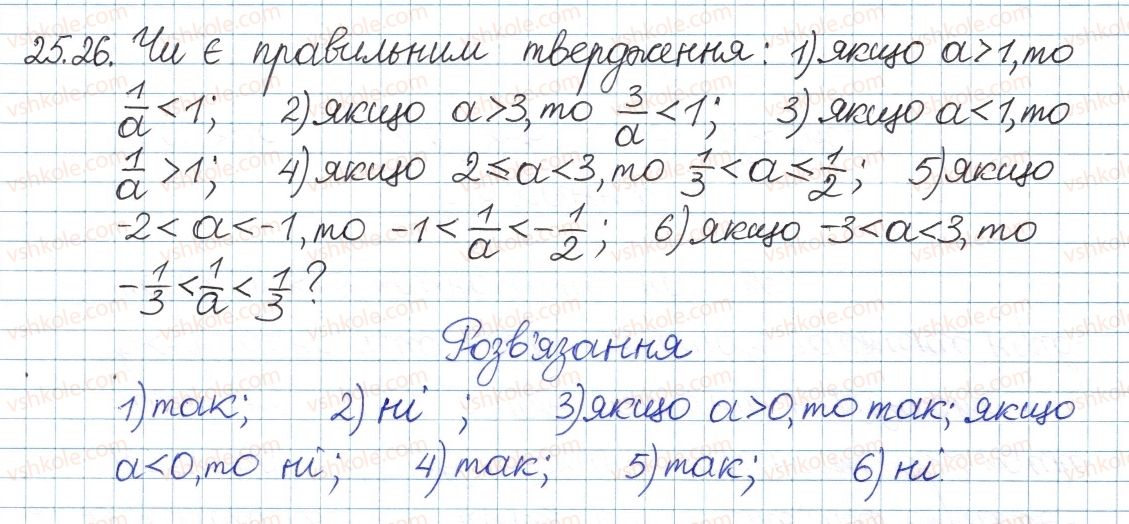 25.26. Чи є правильним твердження: 1) якщо a>1, то
1/a < 1; 2) якщо a>3, то 3/a < 1; 3) якщо a<1, то
1/a > 1; 4) якщо 2≤a<3, то 1/3 < a ≤ 1/2; 5) якщо
-2 < a < -1, то -1 < 1/a < -1/2; 6) якщо -3<a<3, то
-1/3 < 1/a < 1/3?
Розв'язання
1) так; 2) ні ; 3) якщо a>0, то так; якщо
a<0, то ні; 4) так; 5) так; 6) ні.
vshkole.com